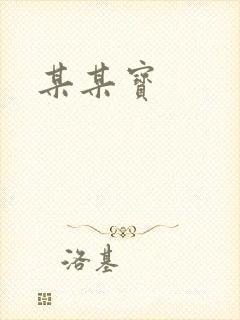 某某寶
洛基